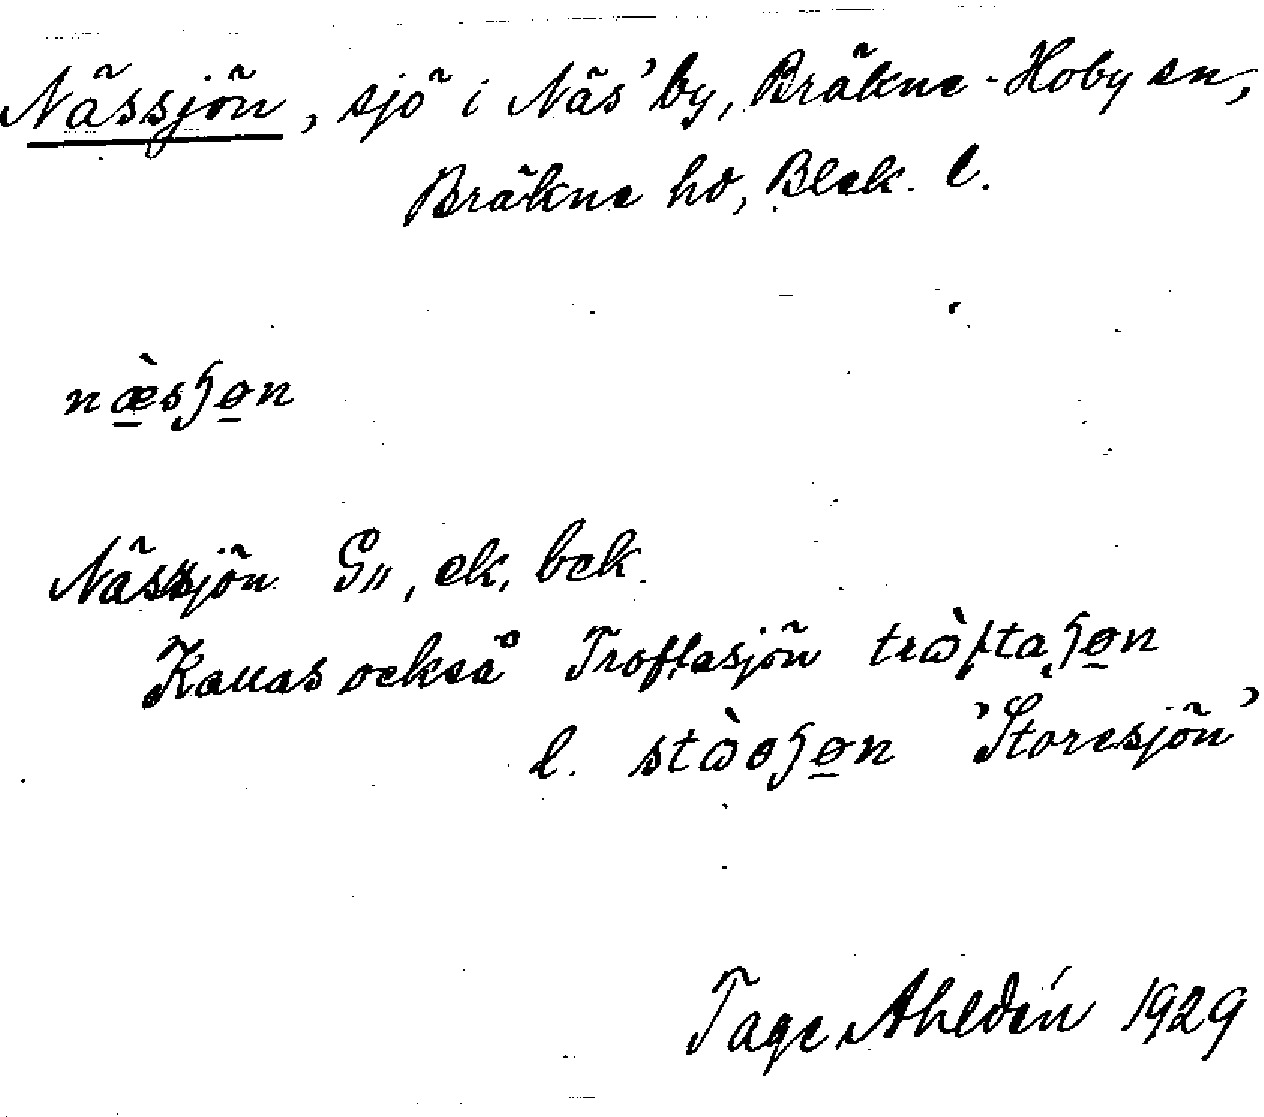 Nässjön, sjö i Näs' by, Bräkne-Hoby sn,
Bräkne hd, Blek. l.
næ̀sʃøn
Nässjön G", ek, bek.
Kallas också Troftasjön trɷ̀ftaʃøn
l. stɷ̀oʃøn 'Storesjön'
Tage Ahldén 1929